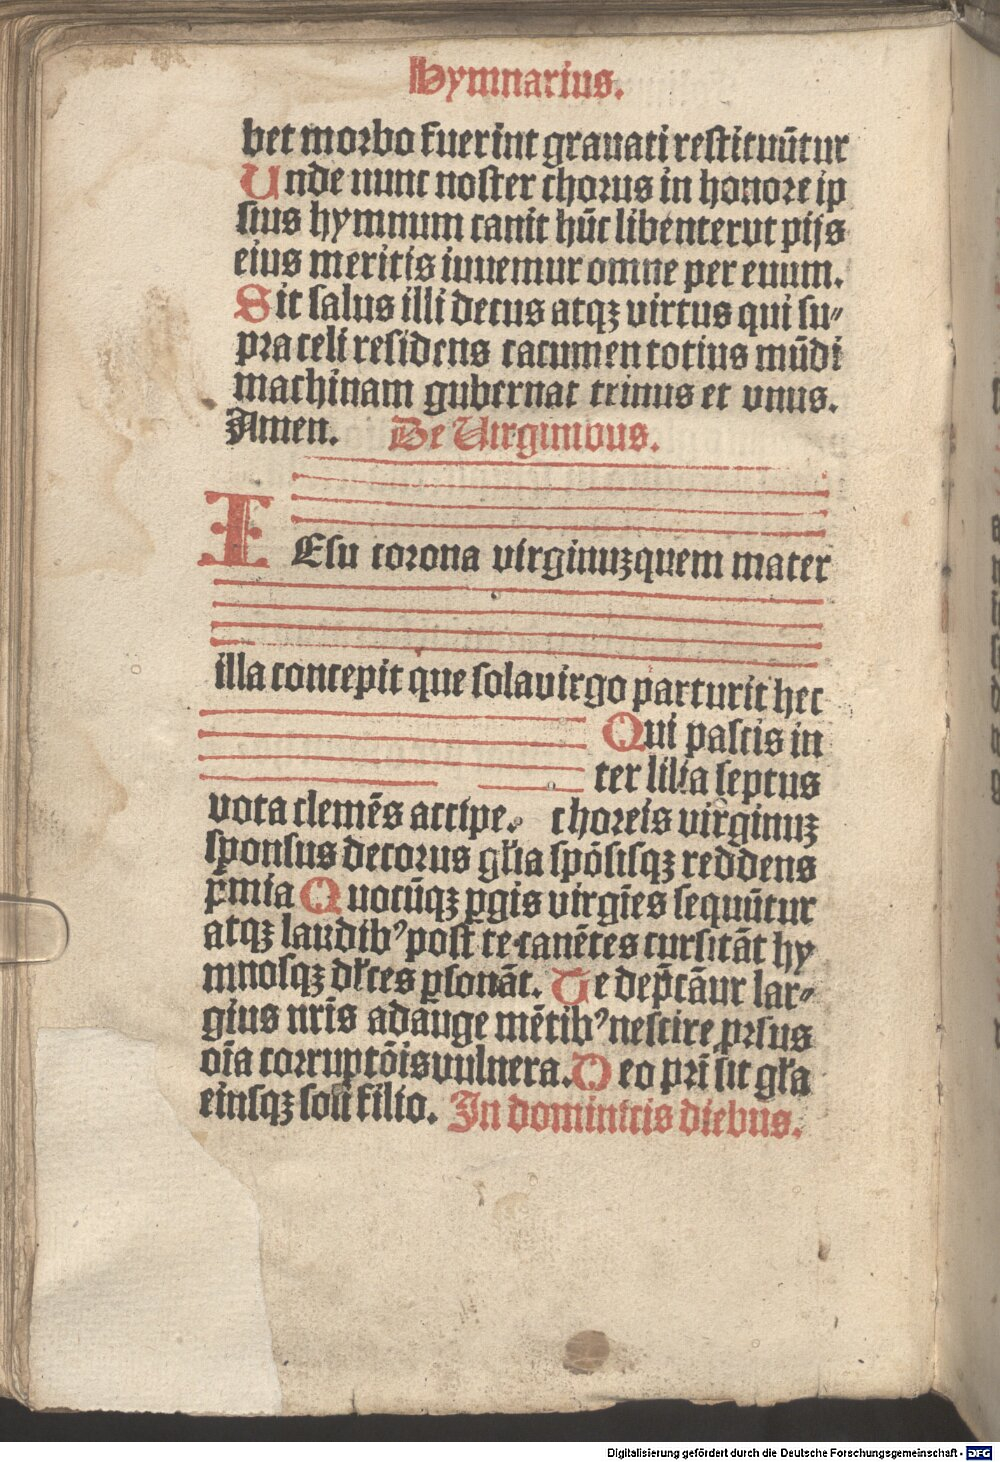 Hymnarius.
bet morbo fuerint grauati restituūtur
Unde nunc noster chorus in honore ip
sius hymnum canit hūc libenter vt pijs
eius meritis iuuemur omne per euum.
Sit salus illi decus atqꝫ virtus qui su⸗
pra celi residens cacumen totius mūdi
machinam gubernat trinus et vnus.
Amen. De Uirginibus.
IEsu corona virginuꝫ quem mater
illa concepit que sola virgo parturit hec
Qui pascis in
ter lilia septus
vota clemēs accipe. choreis virginuꝫ
sponsus decorus gl̄ia spōsisqꝫ reddens
p̄mia Quocūqꝫ ꝑgis virgīes sequūtur
atqꝫ laudibꝰ post te canētes cursitāt hy
mnosqꝫ dl̄ces ꝑsonāt. Te dep̄cāur lar⸗
gius nr̄is adauge mētibꝰ nescire ꝓrsus
oīa corruptōis vulnera. Deo pr̄i sit gl̄a
eiusqꝫ soli filio. In dominicis diebus.
Digitalisierung gefördert durch die Deutsche Forschungsgemeinschaft - DFG